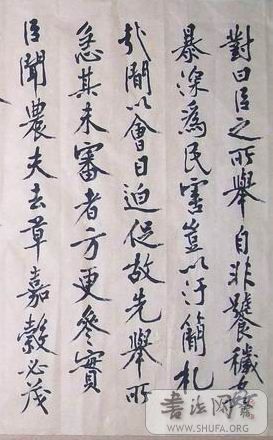 對曰臣之所舉自非饕穢姦
暴深爲民害豈以汙簡札
哉間以會日迫促故先舉所
急其未審者方更參實
臣聞農夫去草嘉穀必茂
书法网
WWW.SHUFA.ORG